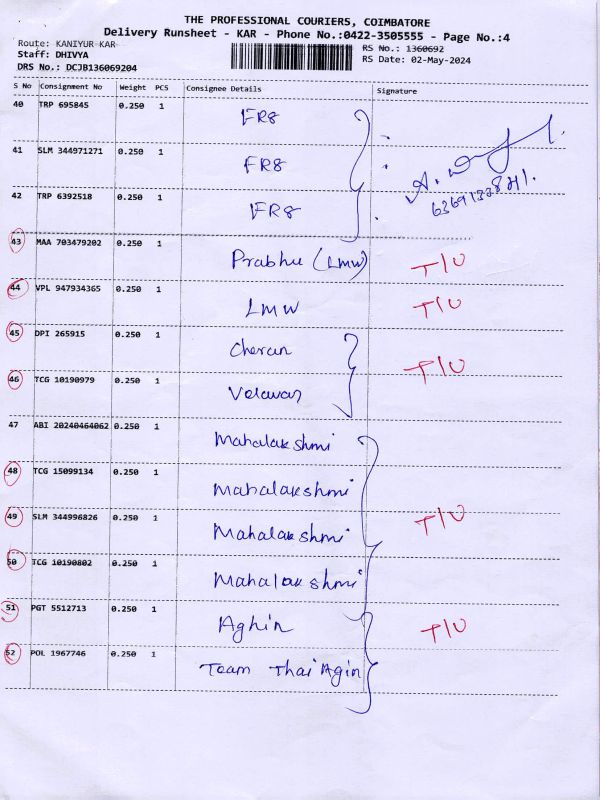 THE PROFESSIONAL COURIERS, COIMBATORE
Delivery Runsheet - KAR - Phone No.:0422-3505555 - Page No.:4
Route: KANIYUR KAR
Staff: DHIVYA
DRS No.: DCJB136069204
RS No.: 1360692
RS Date: 02-May-2024
S No Consignment No Weight PCS Consignee Details Signature
40 TRP 695845 0.250 1 FR8
41 SLM 344971271 0.250 1 FR8
42 TRP 6392518 0.250 1 FR8
43 MAA 703479202 0.250 1 Prabhu (LMW) T/U
44 VPL 947934365 0.250 1 LMW T/U
45 DPI 265915 0.250 1 Cheran T/U
46 TCG 10190979 0.250 1 Velavan
47 ABI 20240464062 0.250 1 Mahalakshmi
48 TCG 15099134 0.250 1 Mahalakshmi
49 SLM 344996826 0.250 1 Mahalakshmi T/U
50 TCG 10190802 0.250 1 Mahalakshmi
51 PGT 5512713 0.250 1 Aghin T/U
52 POL 1967746 0.250 1 Team Thai Agin